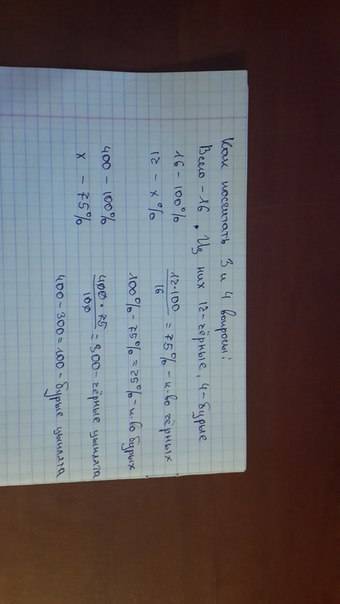 Как посчитать 3 и 4 вопросы:
Всего - 16. Из них 12 - чёрные, 4 - бурые
16 - 100%
12 - x%
12·100/16 = 75% - к-во чёрных
100% - 75% = 25% - к-во бурых
400 - 100%
x - 75%
400·75/100 = 300 - чёрные цыплята
400 - 300 = 100 - бурые цыплята